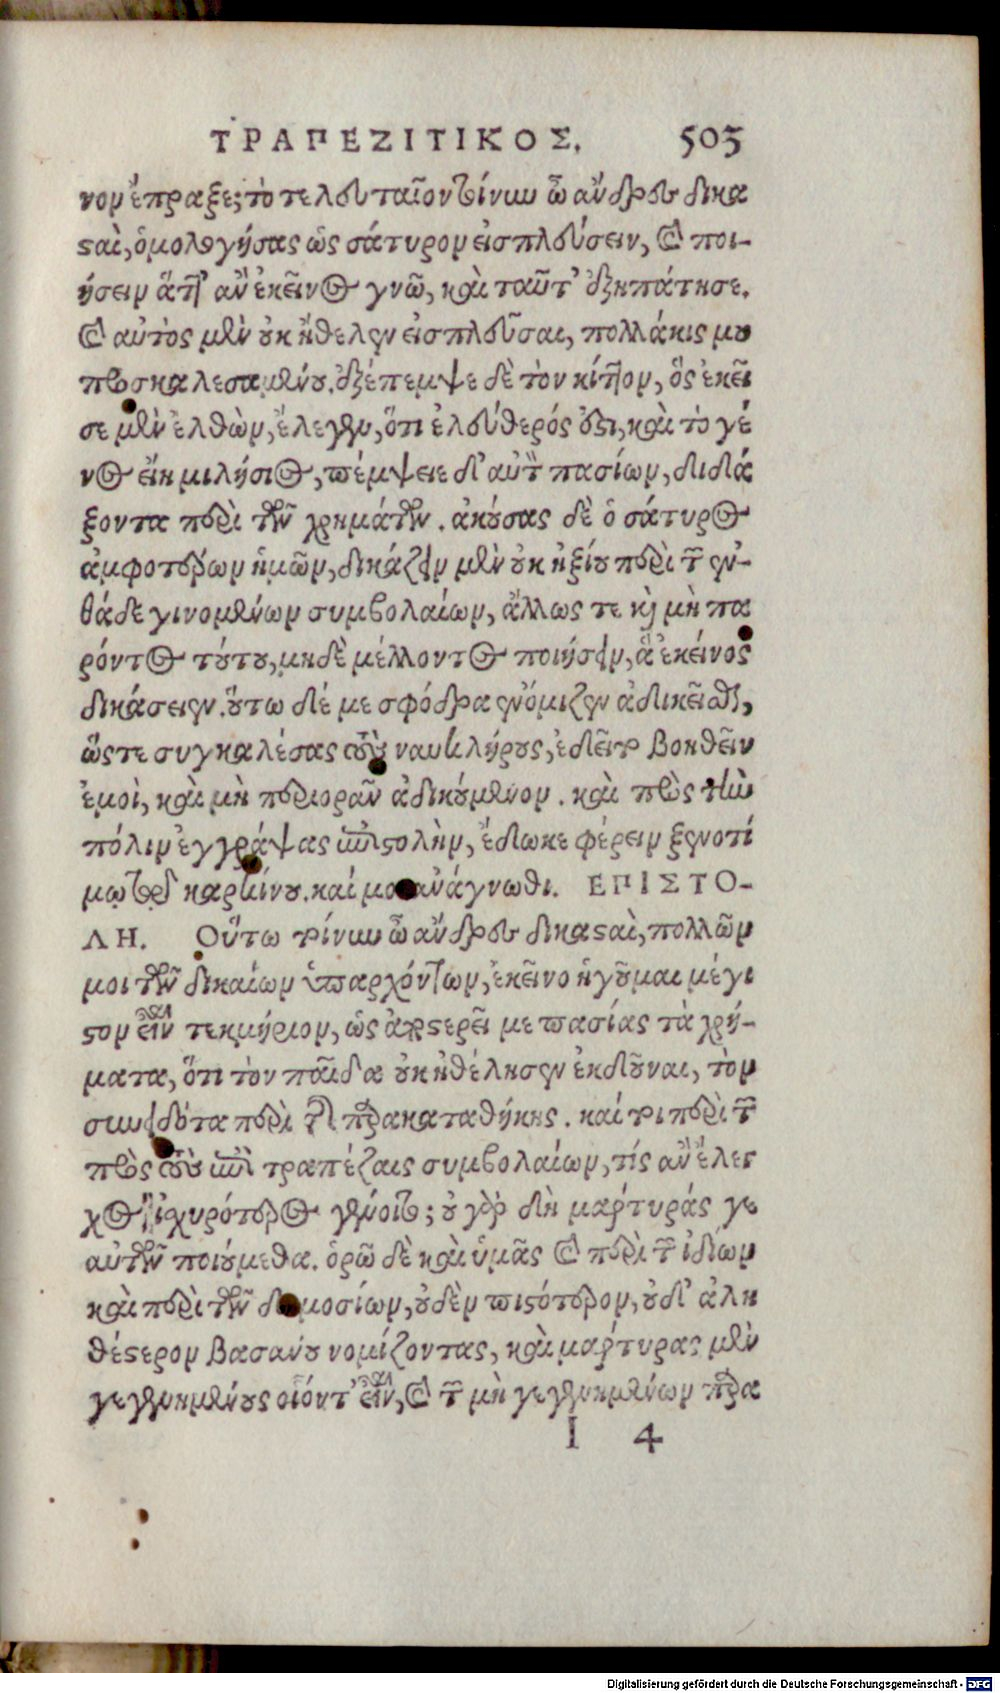 ΤΡΑΠΕΖΙΤΙΚΟΣ. 505
νον ἔπραξε; τὸ τελευταῖον τοίνυν ὦ ἄνδρες δικα
σαὶ, ὁμολογήσας ὡς σάτυρον εἰσπλεύσειν, καὶ ποι-
ήσειν ἅττ' ἂν ἐκεῖνος γνῶ, καὶ ταῦτ' ἐξηπάτησε.
καὶ αὐτὸς μὲν οὐκ ἤθελεν εἰσπλεῦσαι, πολλάκις μου
προσκαλεσαμένου. ἐξέπεμψε δὲ τὸν κίττον, ὃς ἐκεῖ
σε μὲν ἐλθὼν, ἔλεγεν, ὅτι ἐλεύθερός ἐστι, καὶ τὸ γέ
νος εἴη μιλήσιος, πέμψειε δ' αὐτὸν πασίων, διδά
ξοντα περὶ τῶν χρημάτων. ἀκούσας δὲ ὁ σάτυρος
ἀμφοτέρων ἡμῶν, δικάζειν μὲν οὐκ ἠξίου περὶ τῶν ἐν-
θάδε γινομένων συμβολαίων, ἄλλως τε καὶ μὴ πα
ρόντος τούτου, μηδὲ μέλλοντος ποιήσειν, ἃ ἐκείνος
δικάσειεν. οὕτω δέ με σφόδρα ἐνόμιζεν ἀδικεῖσθαι,
ὥστε συγκαλέσας τοὺς ναυκλήρους, ἐδεῖτο βοηθεῖν
ἐμοὶ, καὶ μὴ περιορᾶν ἀδικούμενον. καὶ πρὸς τὴν
πόλιν ἐγγράψας ἐπιστολὴν, ἔδωκε φέρειν ξενοτί
μῳ τῷ καρκίνου. καί μοι ἀνάγνωθι. ΕΠΙΣΤΟ-
ΛΗ. Οὕτω τοίνυν ὦ ἄνδρες δικασταὶ, πολλῶν
μοι τῶν δικαίων ὑπαρχόντων, ἐκεῖνο ἡγοῦμαι μέγι
στον εἶναι τεκμήριον, ὡς ἀποστερεῖ με πασίας τὰ χρή-
ματα, ὅτι τὸν παῖδα οὐκ ἠθέλησεν ἐκδοῦναι, τὸν
συνειδότα περὶ τῆς παρακαταθήκης. καί τοι περὶ τῶν
πρὸς τοὺς ἐπὶ τραπέζαις συμβολαίων, τίς ἂν ἔλεγ
χος ἰσχυρότερος γένοιτο; οὐ γὰρ δὴ μάρτυράς γε
αὐτῶν ποιούμεθα. ὁρῶ δὲ καὶ ὑμᾶς καὶ περὶ τῶν ἰδίων
καὶ περὶ τῶν δημοσίων, οὐδὲν πιστότερον, οὐδ' ἀλη
θέστερον βασάνου νομίζοντας, καὶ μάρτυρας μὲν
γεγενημένους οἷόντ' εἶναι, καὶ τῶν μὴ γεγενημένων παρα
I 4
Digitalisierung gefördert durch die Deutsche Forschungsgemeinschaft - DFG